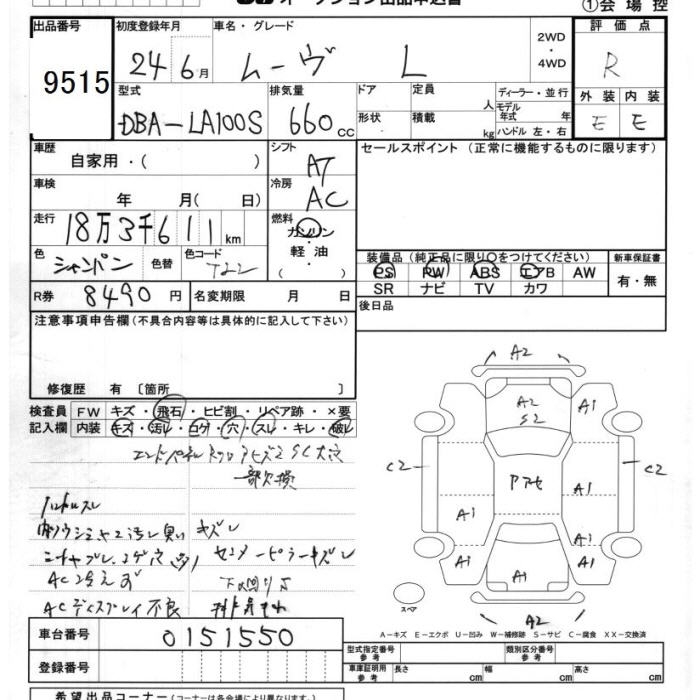 オークション出品申込書
①会場控
出品番号 9515
初度登録年月 24年6月
車名・グレード ムーヴ L
2WD・4WD
評価点 R
外装 E 内装 E
型式 DBA-LA100S
排気量 660cc
ドア
形状
定員 人
積載 kg
ディーラー・並行
モデル年式 年
ハンドル 左・右
車歴 自家用・( )
シフト AT
セールスポイント (正常に機能するものに限ります)
車検 年 月( 日)
冷房 AC
走行 18万3千611km
燃料 ガソリン・軽油・( )
色 シャンパン 色替 色コード T22
装備品 (純正品に限り○をつけてください)
新車保証書 有・無
PS PW ABS エアB AW
SR ナビ TV カワ
R券 8490円 名変期限 月 日
後日品
注意事項申告欄 (不具合内容等は具体的に記入して下さい)
修復歴 有 〔箇所 〕
検査員記入欄
FW キズ・飛石・ヒビ割・リペア跡・×要
内装 キズ・汚レ・コゲ・穴・スレ・キレ・破レ
一部欠損
ハンドルスレ
キズレ
センターピラーキズレ
AC冷えず
下回りサ
ACディスプレイ不良
排気もれ
A2
A2
S2
A1
A1
C2
C2
アアセ
A1
A1
A1
A1
A1
A1
A2
スペア
A-キズ E-エクボ U-凹み W-補修跡 S-サビ C-腐食 XX-交換済
車台番号 0151550
登録番号
型式指定番号 参考
類別区分番号 参考
車庫証明用 参考 長さ cm 幅 cm 高さ cm
希望出品コーナー